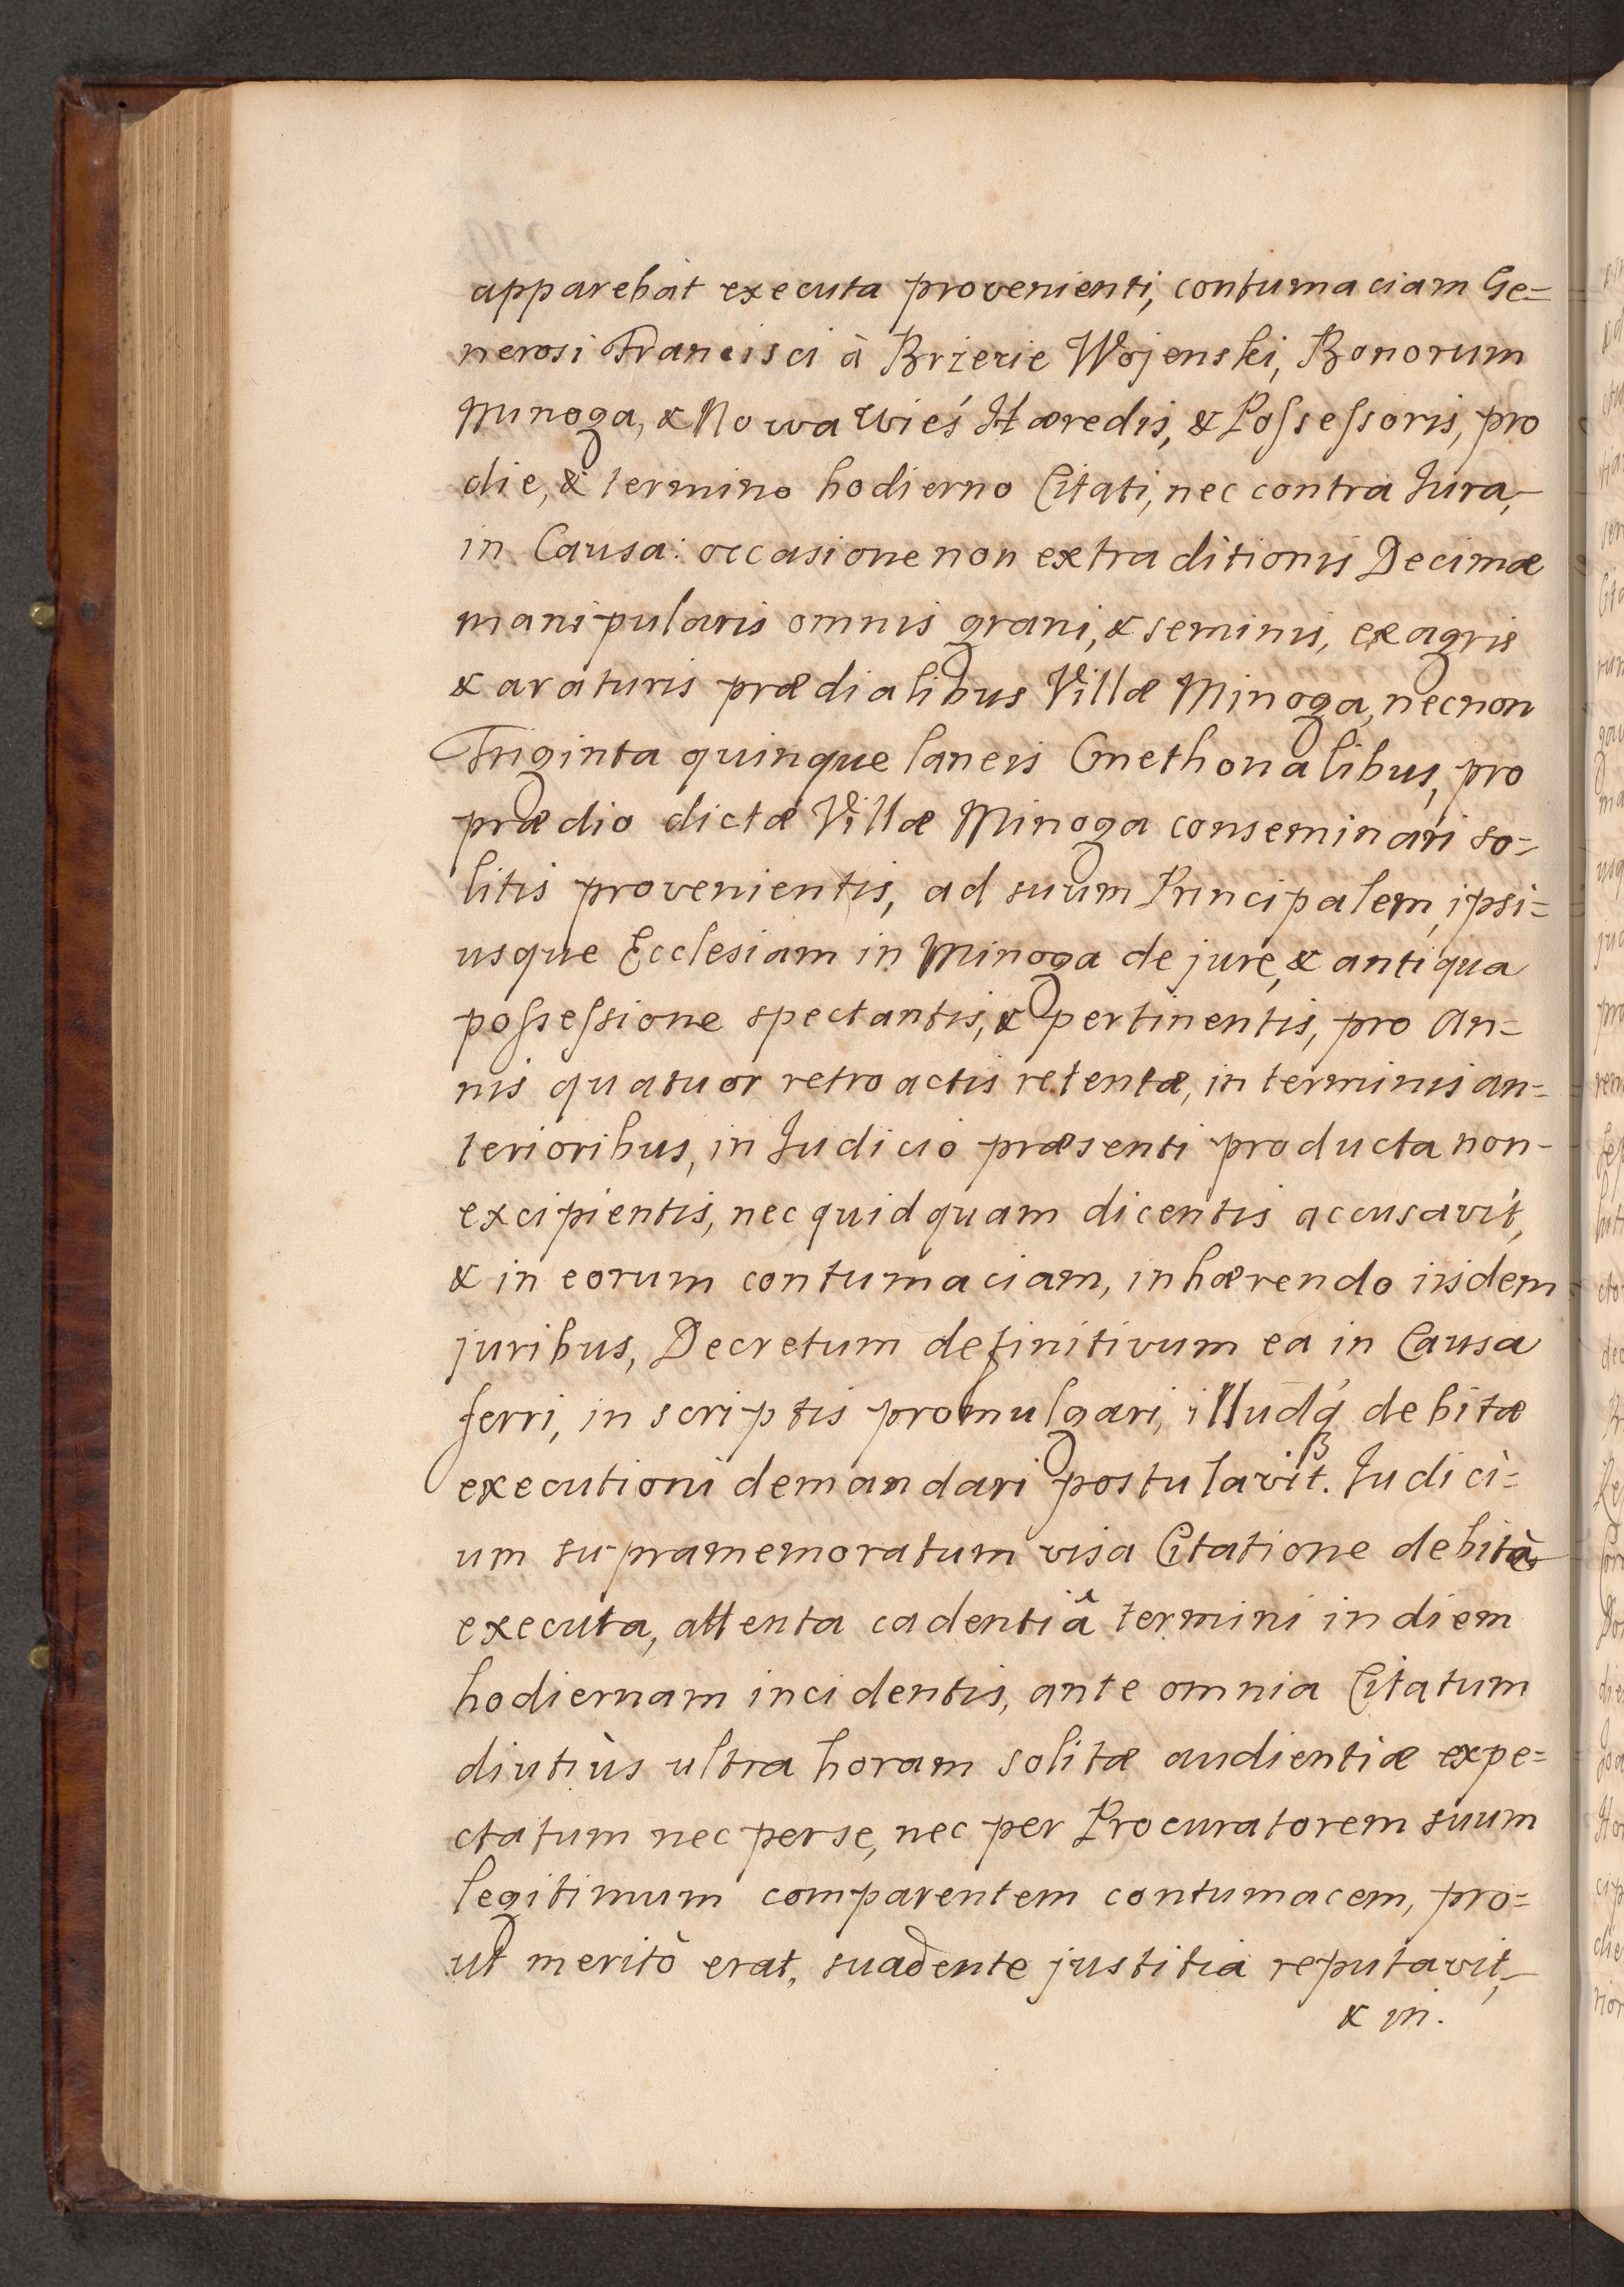 apparebat executa provenienti, contumaciam Ge=
nerosi Francisci à Brzezie Wojenski, Bonorum
Minoga, & Nowa Wieś Hæredis, & Possessoris, pro
die, & termino hodierno Citati, nec contra Jura,
in Causa: occasione non extraditionis Decimæ
manipularis omnis grani, & seminis, ex agris
& araturis prædialibus Villæ Minoga, necnon
Triginta quinque laneis Cmethonalibus, pro
prædio dictæ Villæ Minoga conseminari so=
litis provenientis, ad suum Principalem, ipsi=
usque Ecclesiam in Minoga de jure, & antiqua
possessione spectantis, & pertinentis, pro An=
nis quatuor retroactis retentæ, in terminis an=
terioribus, in Judicio præsenti producta non-
excipientis, nec quidquam dicentis accusavit,
& in eorum contumaciam, inhærendo iisdem
juribus, Decretum definitivum ea in Causa
ferri, in scriptis promulgari, illudq́ debitæ
executioni demandari postulavit. Judici=
um supramemoratum visa Citatione debitè
executa, attenta cadentiâ termini in diem
hodiernam incidentis, ante omnia Citatum
diutiùs ultra horam solitæ audientiæ expe=
ctatum nec per se, nec per Procuratorem suum
legitimum comparentem contumacem, pro=
ut meritò erat, suadente justitia reputavit,
& in.